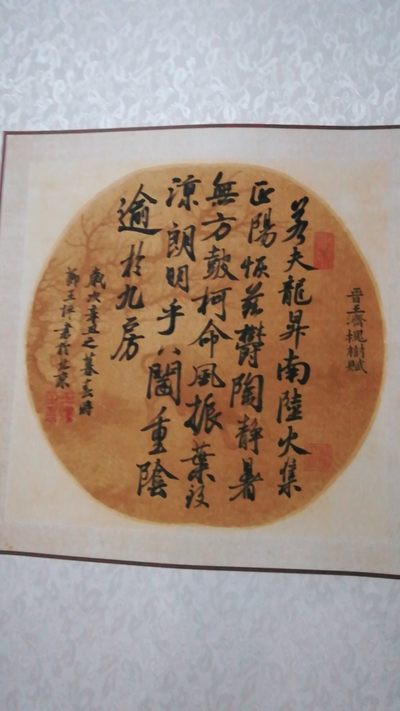 晋王濟槐樹賦
若夫龍昇南陸火集
正陽恢茲鬱陶靜暑
無方鼓柯命風振葉致
涼朗明乎八闥重陰
逾於九房
歲次辛丑之暮春時
書於北京